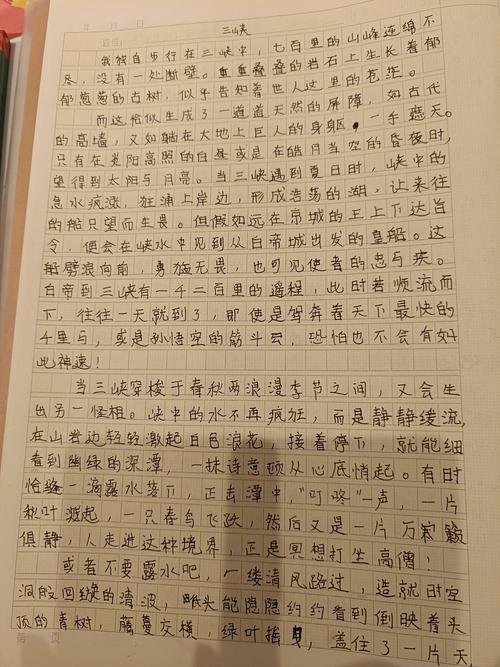 三峡
我独自步行在三峡中，七百里的山峰连绵不
尽，没有一处断壁。重重叠叠的岩石上生长着郁
郁葱葱的古树，似乎告知着世人这里的苍茫。
而这恰似生成了一道道天然的屏障，如古代
的高墙，又如躺在大地上巨人的身躯，一手遮天。
只有在炎阳高照的白昼或是在皓月当空的昏夜时，
望得到太阳与月亮。当三峡遇到夏日时，峡中的
急水疯涨，狂涌上岸边，形成浩荡的湖，让来往
的船只望而生畏。但假如远在京城的王上下达旨
令，便会在峡水中见到从白帝城出发的皇船。这
船劈浪向前，勇施无畏，也可见使者的忠与疾。
白帝到三峡有一千二百里的遥程，此时若顺流而
下，往往一天就到了，即使是驾奔着天下最快的
千里马，或是孙悟空的筋斗云，恐怕也不会有如
此神速！
当三峡穿梭于春秋两浪漫季节之间，又会生
出另一怪相。峡中的水不再疯狂，而是静静缓流，
在山岩边轻轻激起白色浪花，接着停下，就能细
看到幽绿的深潭，一抹诗意顿从心底悄起。有时
恰缝一滴露水落下，正击潭中，"叮咚"一声，一片
秋叶漾起，一只春鸟飞跃，然后又是一片万籁
俱静，人走进这种境界，正是冥想打坐高僧！
或者不要露水吧，一缕清风路过，造就时空
洞般回旋的清波，眺头能隐隐约约看到倒映着头
顶的青树，藤蔓交横，绿叶摇，盖住了一片天
第 页